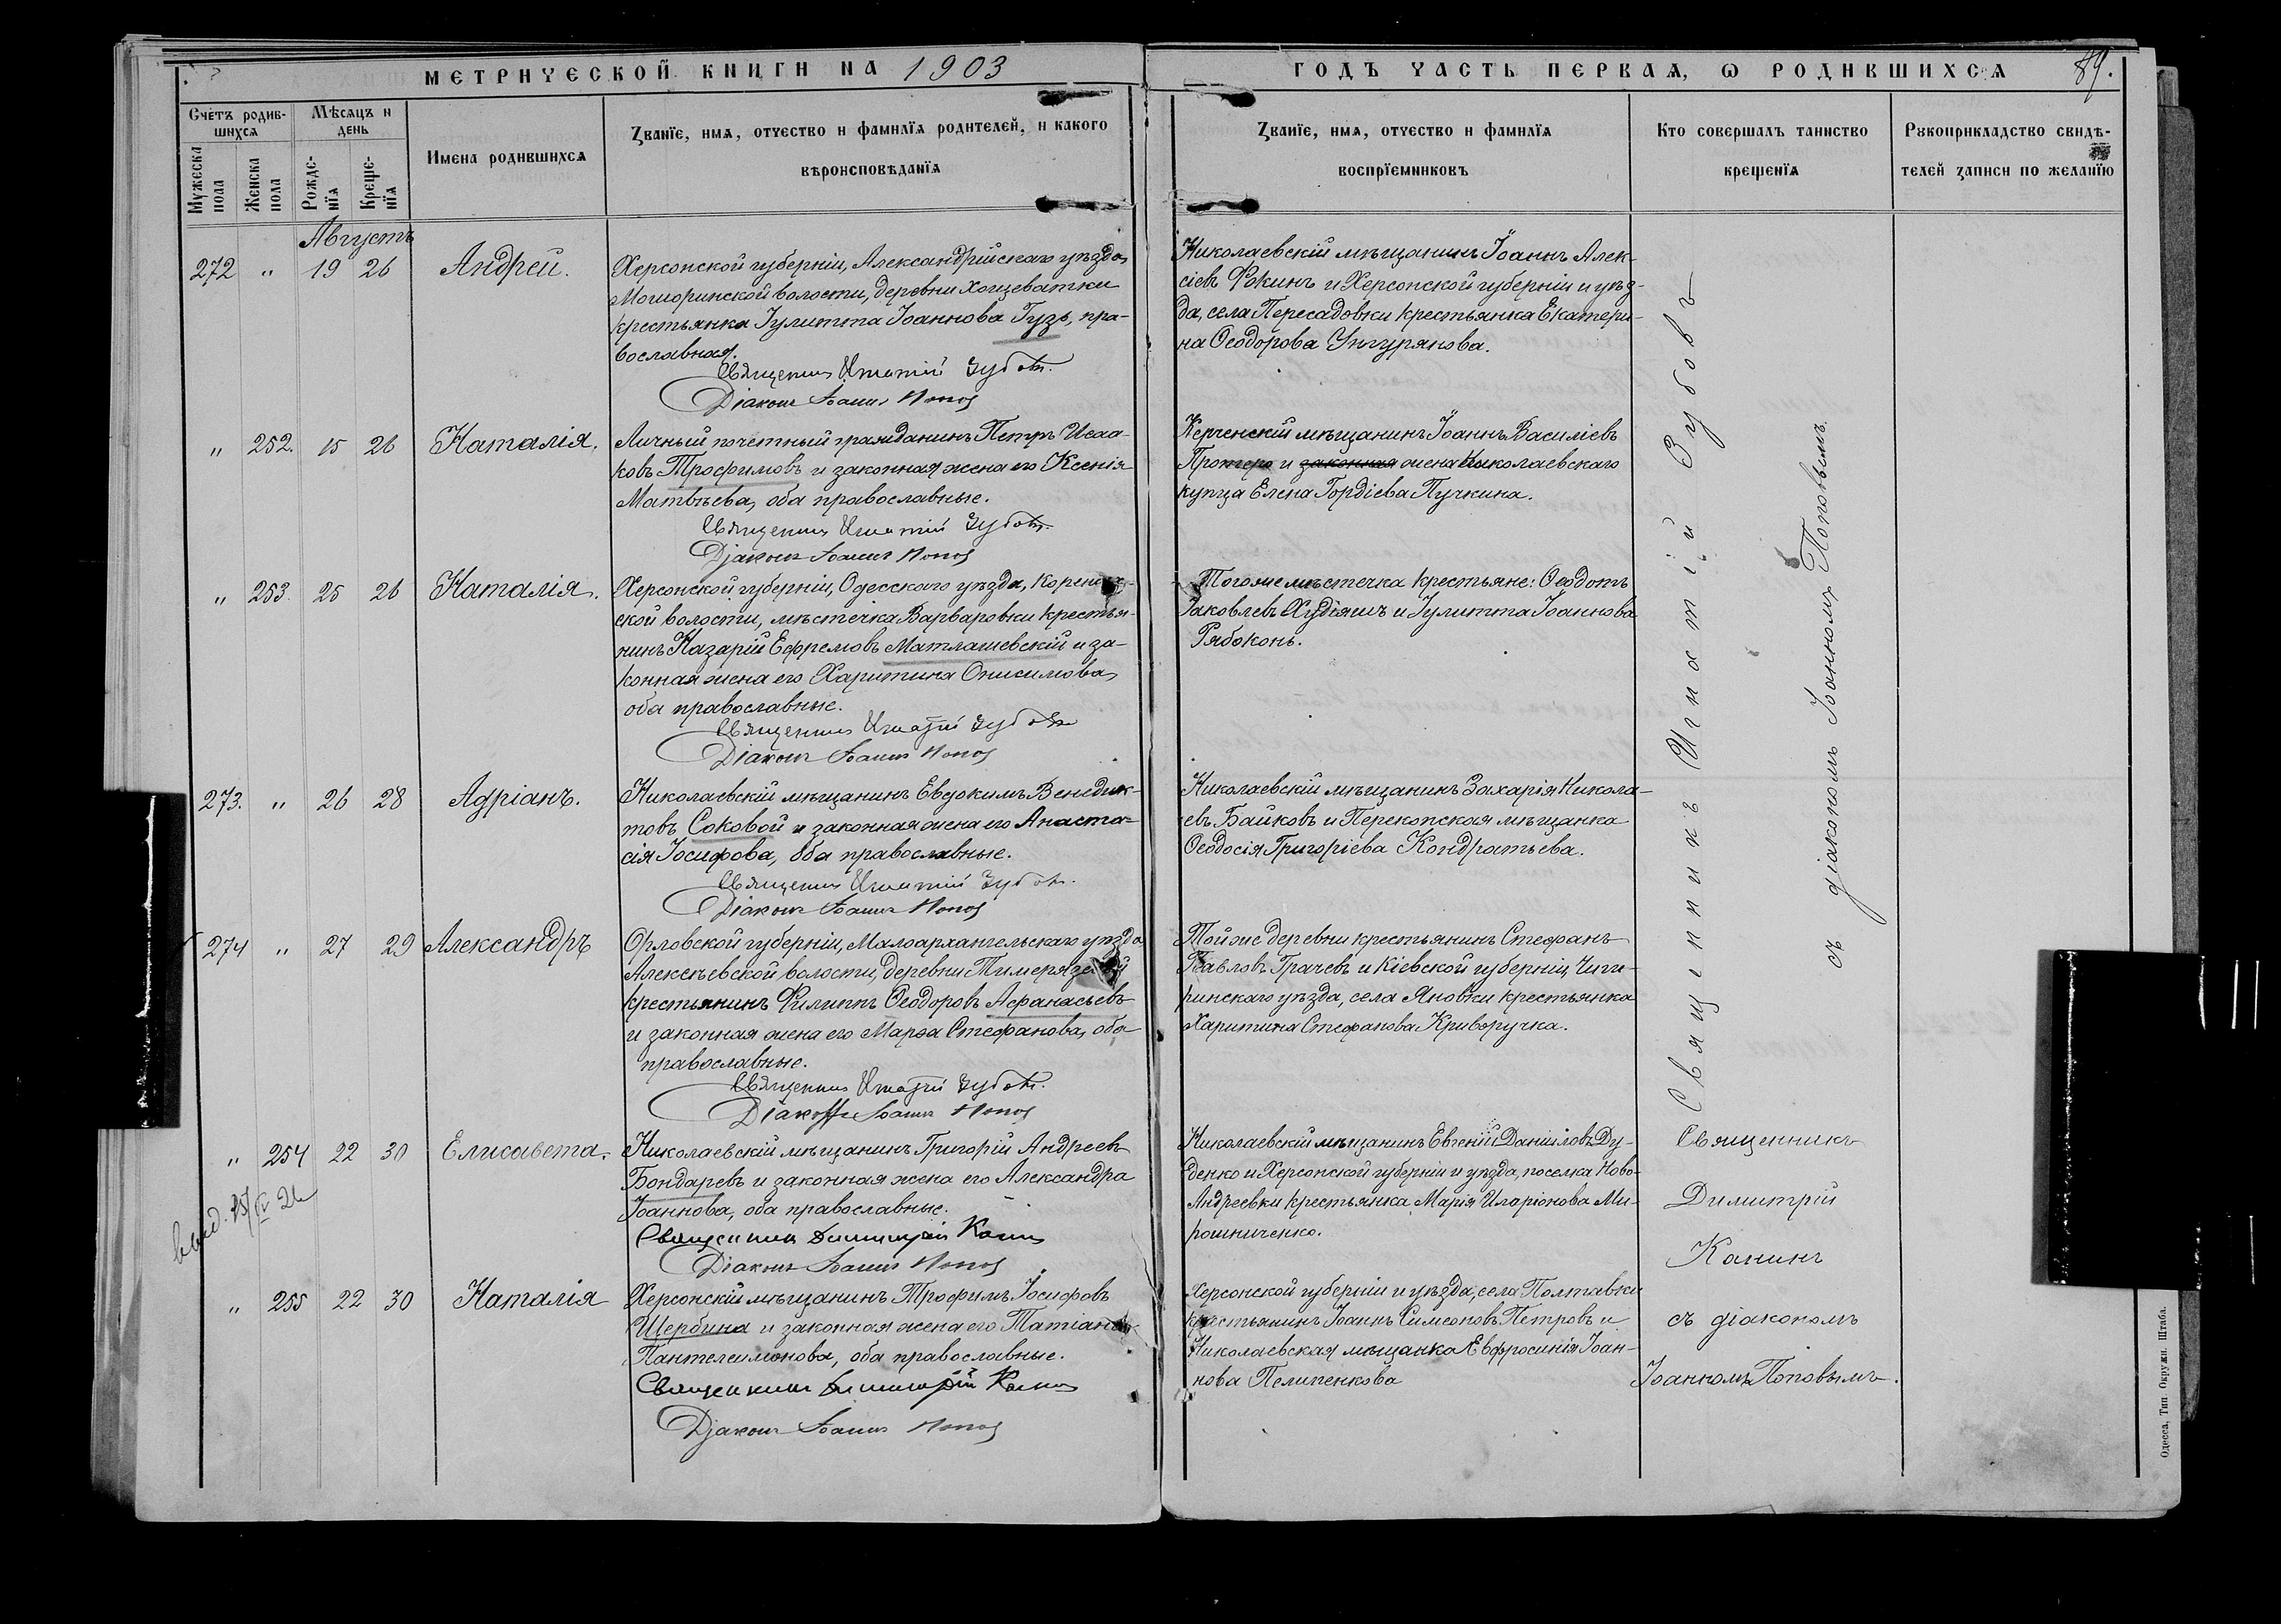 МЕТРИЧЕСКОЙ КНИГИ НА 1903
ГОДЪ ЧАСТЬ ПЕРВАЯ, Ѡ РОДИВШИХСЯ
89.
Счетъ родив-
шихся
Мѣсяцъ и
день
Мужеска
пола
Женска
пола
Рожде-
нїя
Креще-
нїя
Имена родившихся
Званїе, имя, отчество и фамилїя родителей, и какого
вѣроисповѣданїя
Званїе, имя, отчество и фамилїя
воспрїемниковъ
Кто совершалъ таинство
крещенїя
Рукоприкладство свидѣ-
телей записи по желанїю
Августъ
272 " 19 26 Андрей.
Херсонской губерніи, Александрійскаго уѣзда,
Мошоринской волости, деревни Хощеватки
крестьянка Іулитта Іоаннова Гузь, пра-
вославная.
Священникъ Игнатій Зубовъ.
Діаконъ Іоаннъ Поповъ
Николаевскій мѣщанинъ Іоаннъ Алек-
сіевъ Фокинъ и Херсонской губерніи и уѣз-
да, села Пересадовки крестьянка Екатери-
на Ѳеодорова Унгурянова.
" 252. 15 26 Наталія.
Личный почетный гражданинъ Петръ Исаа-
ковъ Трофимовъ и законная жена его Ксенія
Матвѣева, оба православные.
Священникъ Игнатій Зубовъ.
Діаконъ Іоаннъ Поповъ
Керченскій мѣщанинъ Іоаннъ Василіевъ
и законная жена Николаевскаго
купца Елена Гордіева Пучкина.
" 253. 25 26 Наталія.
Херсонской губерніи, Одесскаго уѣзда,
ской волости, мѣстечка Варваровки крестья-
нинъ Назарій Ефремовъ Матлашевскій и за-
конная жена его Харитина Онисимова,
оба православные.
Священникъ Игнатій Зубовъ
Діаконъ Іоаннъ Поповъ
Того же мѣстечка крестьяне: Ѳеодотъ
Іаковлевъ Худіяшъ и Іулитта Іоаннова
Рябоконь.
273. " 26 28 Адріанъ.
Николаевскій мѣщанинъ Евдокимъ Венедик-
товъ Соковой и законная жена его Анаста-
сія Іосифова, оба православные.
Священникъ Игнатій Зубовъ.
Діаконъ Іоаннъ Поповъ
Николаевскій мѣщанинъ Захарія Никола-
евъ Байковъ и Перекопская мѣщанка
Ѳеодосія Григоріева Кондратьева.
274 " 27 29 Александръ
Орловской губерніи, Малоархангельскаго уѣзда
Алексѣевской волости, деревни
крестьянинъ Филиппъ Ѳеодоровъ Аѳанасьевъ
и законная жена его Марѳа Стефанова, оба
православные.
Священникъ Игнатій Зубовъ.
Діаконъ Іоаннъ Поповъ
Той же деревни крестьянинъ Стефанъ
Павловъ Грачевъ и Кіевской губерніи, Чиги-
ринскаго уѣзда, села Яновки крестьянка
Харитина Стефанова Криворучка.
Священникъ Игнатій Зубовъ
съ діакономъ Іоанномъ Поповымъ.
" 254 22 30 Елисавета.
Николаевскій мѣщанинъ Григорій Андреевъ
Бондаревъ и законная жена его Александра
Іоаннова, оба православные.
Священникъ Димитрій Канинъ
Діаконъ Іоаннъ Поповъ
Николаевскій мѣщанинъ Евгеній Даніиловъ Ду-
денко и Херсонской губерніи и уѣзда, поселка Ново-
Андреевки крестьянка Марія Иларіонова Ми-
рошниченко.
Священникъ
Димитрій
Канинъ
съ діакономъ
Іоанномъ Поповымъ.
" 255 22 30 Наталія
Херсонскій мѣщанинъ Трофимъ Іосифовъ
Щербина и законная жена его Татіана
Пантелеимонова, оба православные.
Священникъ Димитрій Канинъ
Діаконъ Іоаннъ Поповъ
Херсонской губерніи и уѣзда, села Полтавки
крестьянинъ Іоаннъ Симеоновъ Петровъ и
Николаевская мѣщанка Евфросинія Іоан-
нова Пелипенкова
Одесса, Тип. Окружн. Штаба.